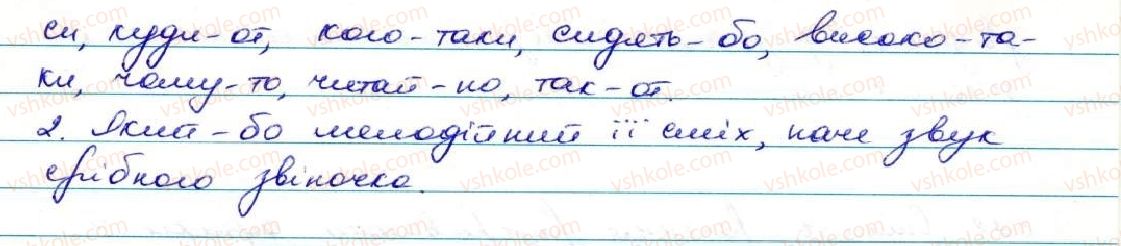 си, куди-от, кого-таки, сидять-бо, високо-та-
ки, чому-то, читай-но, так-от.
2. Який-бо мелодійний її сміх, наче звук
срібного звіночка.